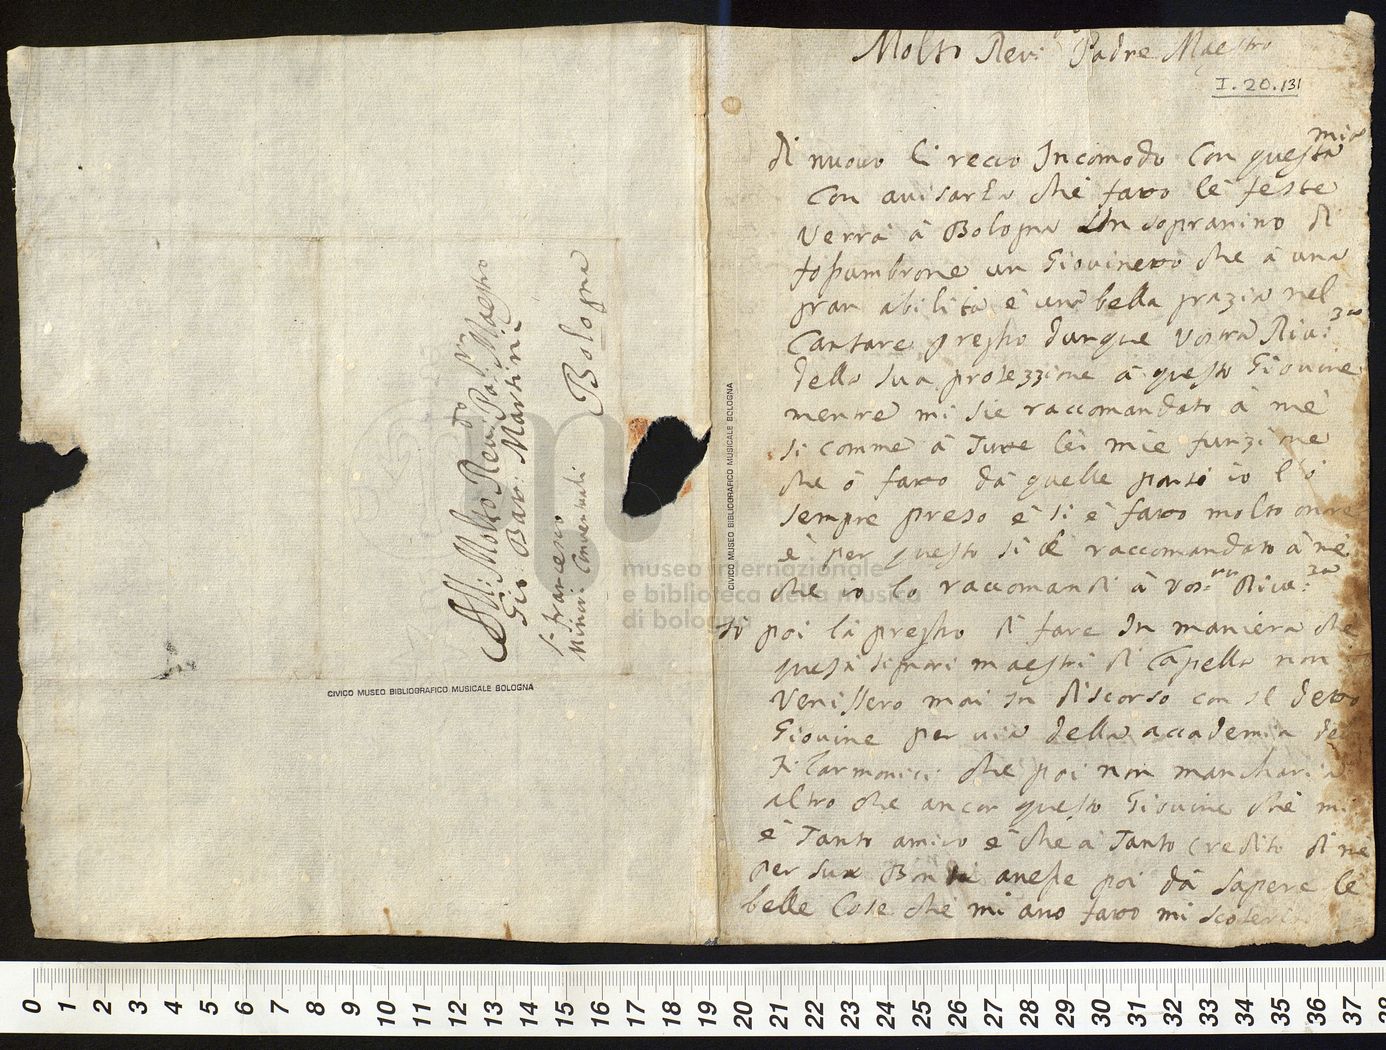 All: Molto Rev:do Pad:re Maestro
Gio: Batt: Martini
S. Francesco
Minori Conventuali
Bologna
CIVICO MUSEO BIBLIOGRAFICO MUSICALE BOLOGNA
museo internazionale
e biblioteca della musica
di bologna
CIVICO MUSEO BIBLIOGRAFICO MUSICALE BOLOGNA
Molto Rev: Padre Maestro
I.20.131
di nuovo li reco Incomodo Con questa mia
Con avisarla che fatto le feste
verrà à Bologna Un sopranino di
un Giovinetto che à una
gran abilità è una bella grazia nel
Cantare pregho dunque Vostra Riv:za
della sua protezzione à questo Giovine
mentre mi sie raccomandato à me
si comme à Tutte lei mie funzione
che ò fatto dà quelle parti io l'ò
sempre preso è si è fatto molto onore
è per questo si è raccomandato à me
che io lo raccomandi à Vos:ra Rive:za
Io poi la pregho di fare In maniera che
questi signori maestri di Capella non
Venissero mai in discorso con il detto
Giovine per via della accademia dei
Filarmonici che poi non mancharia
altro che ancor questo Giovine che mi
è Tanto amico è che à Tanto Credito di me
per sua Bontà avesse poi dà sapere le
belle Cose che mi ano fatto mi
0 1 2 3 4 5 6 7 8 9 10 11 12 13 14 15 16 17 18 19 20 21 22 23 24 25 26 27 28 29 30 31 32 33 34 35 36 37 38